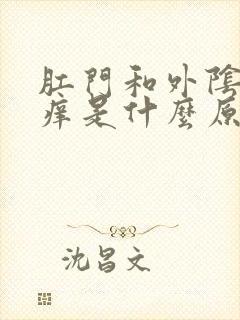 肛門和外陰
癢是什麼原
沈昌文